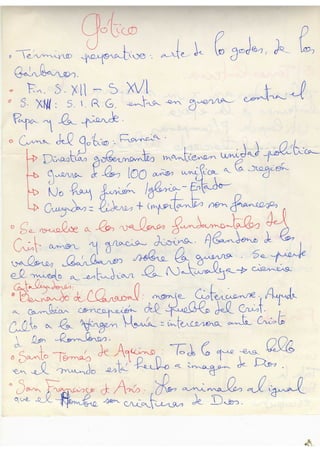 Gótico
• Término peyorativo: arte de los godos, de los
bárbaros.
• Fin. S. XII - S. XVI.
• S. XIII: S.I.R.G. entra en guerra contra el
Papa y la pierde.
• Cuna del Gótico: Francia.
↳ Dinastías gobernantes mantienen unidad política
↳ Guerra d los 100 años unifica a la región
↳ No hay fusión Iglesia - Estado
↳ Cruzadas = líderes + importantes son franceses
• Se vuelve a los valores fundamentales del
Crist: amor y gracia divina. Abandono de los
valores bárbaros sobre la guerra. Se pierde
el miedo a estudiar la Naturaleza → ciencia
Catalizadores:
• Bernardo de Claraval: monje Cisterciense. Ayuda
a cambiar concepción del pueblo del Crist.
Culto a la Virgen María = intercesora ante Cristo
d los hombres.
• Santo Tomás de Aquino. Todo lo que era bello
en el mundo está hecho a imagen de Dios.
• San Francisco d Asís. Los animales al igual
que el Hombre son criaturas de Dios.